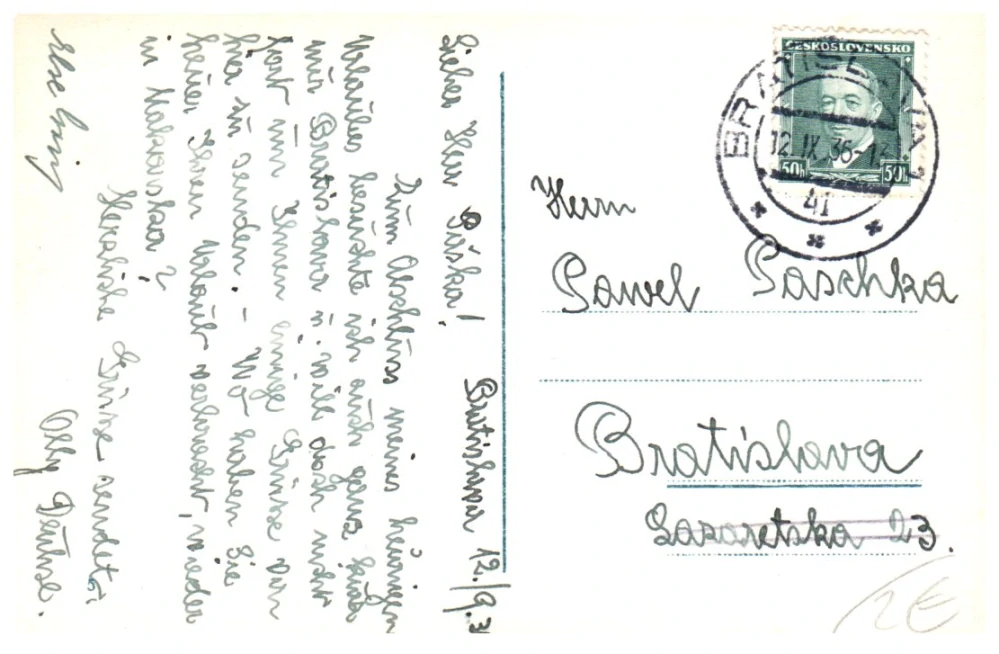 Lieber Herr Páska!
Bratislava 12./9.3
Zum Abschluss meines heurigen
Urlaubes besuchte ich auch ganz kurz
nur Bratislava u. will doch nicht
fort um Ihnen einige Grüsse von
hier zu senden. – Wo haben Sie
heuer Ihren Urlaub verbracht, wieder
in Makarska?
Herzliche Grüsse sendet
Olly Deutse.
ČESKOSLOVENSKO
50h 50h
BRATISLAVA 1
12.IX.36-13
41
Herrn
Pawel Paschka
Bratislava
Lazaretska 23.
2€